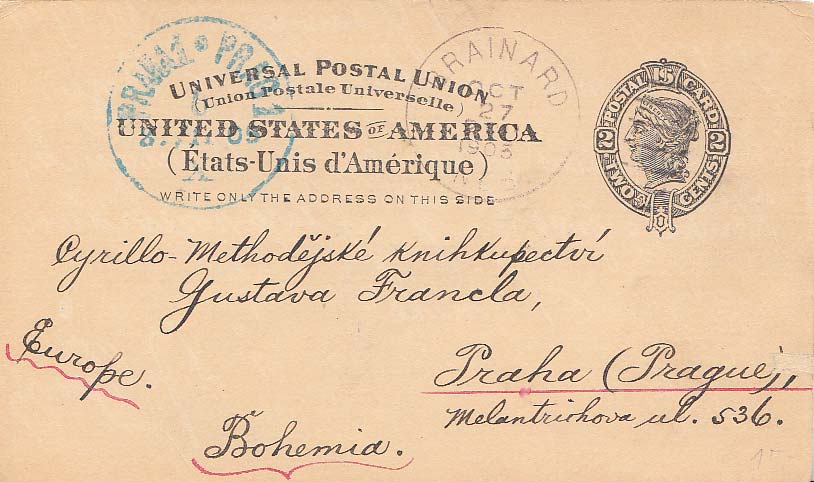 PRAHA 1 * PRAG 1
RAINARD
OCT
27
1905
UNIVERSAL POSTAL UNION
(Union Postale Universelle)
UNITED STATES OF AMERICA
(États-Unis d'Amérique)
WRITE ONLY THE ADDRESS ON THIS SIDE
U.S. POSTAL CARD
2 TWO CENTS 2
Cyrillo-Methodějské knihkupectví
Gustava Francla,
Europe.
Praha (Prague),
Melantrichova ul. 536.
Bohemia.